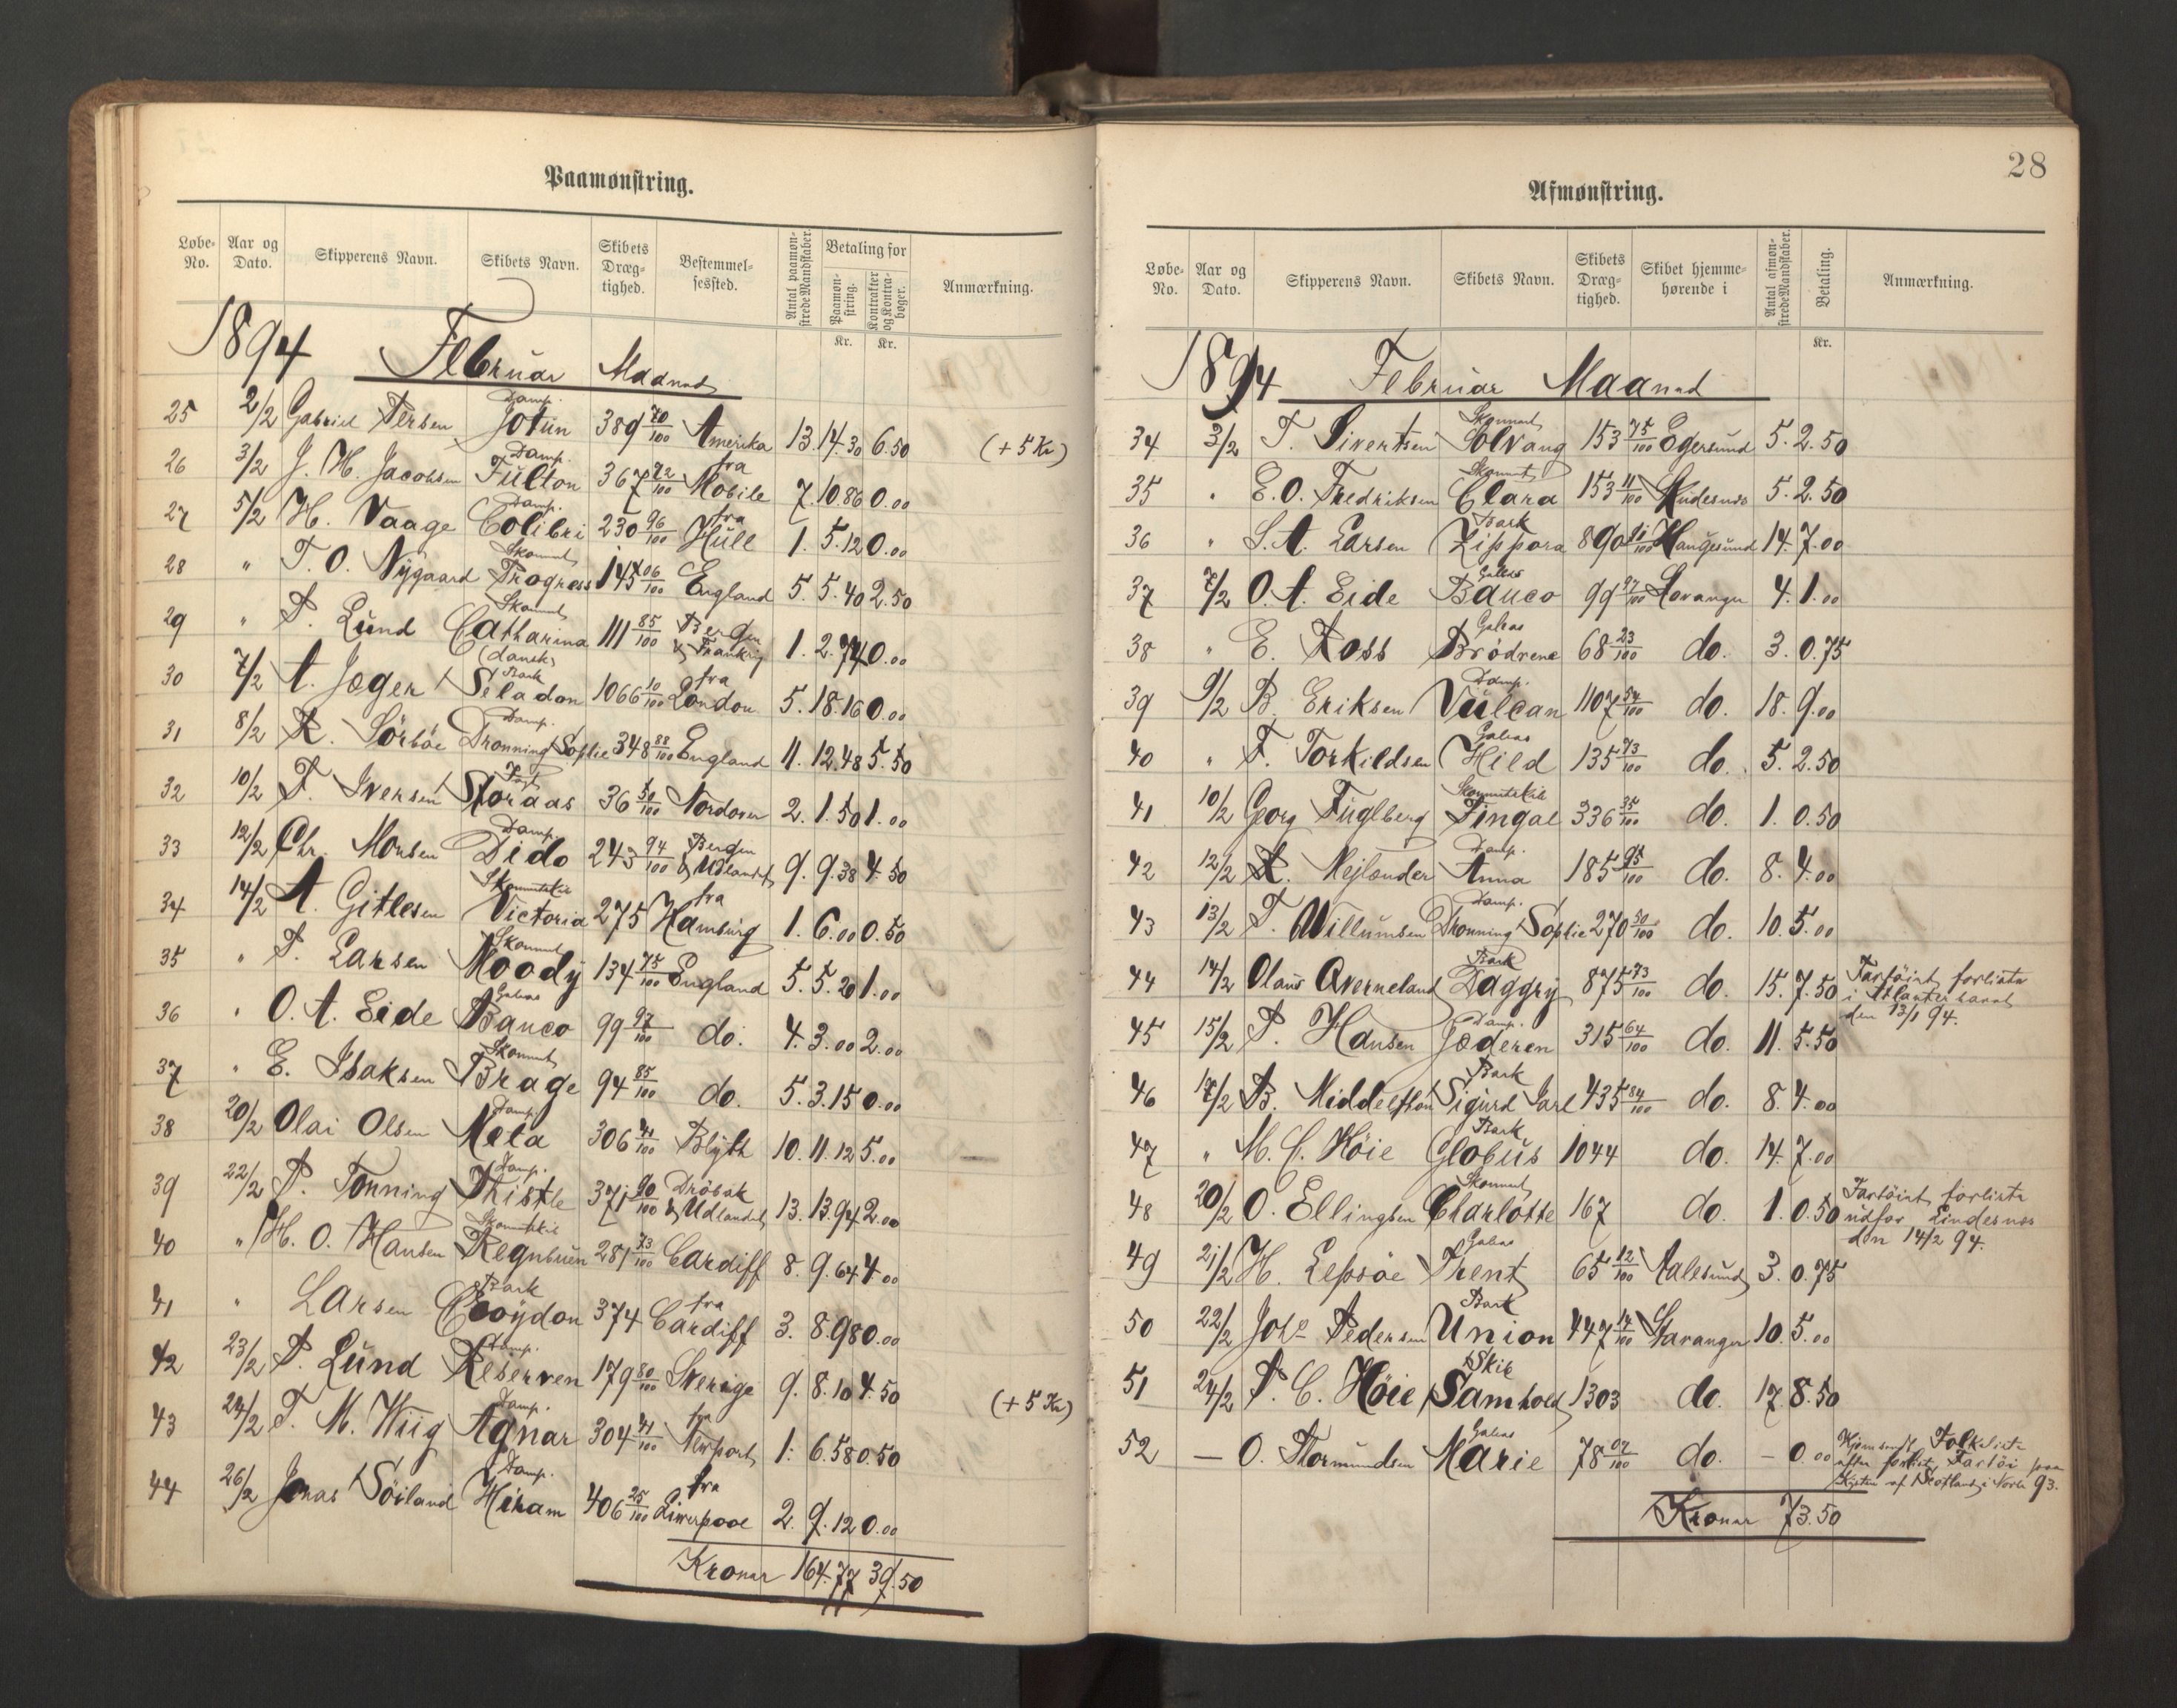 Paamønstring.
Løbe-No. Aar og Dato. Skipperens Navn. Skibets Navn. Skibets Dræg-tighed. Bestemmel-sessted. Antal paamøn-strede Mandskaber. Betaling for Paamøn-string. Kontrakter og Kontra-bøger. Anmærkning.
Kr. Kr.
1894 Februar Maaned
25 2/2 Gabriel Iversen Damp. Jotun 389 70/100 Amerika 13. 14.30 6.50 (+5 Kr)
26 3/2 J. H. Jacobsen Damp. Fulton 367 72/100 fra Mobile 7. 10.86 0.00
27 5/2 H. Vaage Damp. Colibri 230 96/100 fra Hull 1. 5.12 0.00
28 " T. O. Nygaard Skonnert Progress 145 06/100 England 5. 5.40 2.50
29 " P. Lund Skonnert Catharina 111 85/100 Bergen & Frankrig 1. 2.74 0.00
30 7/2 A. Jæger (dansk) Bark Seladon 1066 10/100 fra London 5. 18.16 0.00
31 8/2 K. Sörböe Damp. Dronning Sophie 348 88/100 England 11. 12.48 5.50
32 10/2 T. Iversen Jagt Storaas 36 50/100 Nordover 2. 1.50 1.00
33 12/2 Chr. Monsen Damp. Dido 243 94/100 Bergen & Udlandet 9. 9.38 4.50
34 14/2 A. Gitlesen Skonnertskib Victoria 275 fra Hamburg 1. 6.00 0.50
35 " P. Larsen Skonnert Moody 134 75/100 England 5. 5.20 1.00
36 " O. A. Eide Galeas Banco 99 97/100 do. 4. 3.00 2.00
37 " E. Isaksen Skonnert Brage 94 85/100 do. 5. 3.15 0.00
38 20/2 Olai Olsen Damp. Mela 306 41/100 Blyth 10. 11.12 5.00
39 22/2 P. Tonning Damp. Thistle 371 90/100 Dröbak & Udlandet 13. 13.94 2.00
40 " H. O. Hansen Skonnertskib Regnbuen 281 73/100 Cardiff 8. 9.64 4.00
41 " Larsen Bark Croydon 374 fra Cardiff 3. 8.98 0.00
42 23/2 P. Lund Damp. Reserven 179 80/100 Sverige 9. 8.10 4.50 (+5 Kr)
43 24/2 T. M. Wiig Damp. Agnar 304 41/100 fra Newport 1. 6.58 0.50
44 26/2 Jonas Söiland Damp. Hiram 406 25/100 fra Liverpool 2. 9.12 0.00
Kroner 164.77 39.50
28
Afmønstring.
Løbe-No. Aar og Dato. Skipperens Navn. Skibets Navn. Skibets Dræg-tighed. Skibet hjemme-hørende i Antal afmøn-strede Mandskaber. Betaling. Anmærkning.
Kr.
1894 Februar Maaned
34 3/2 T. Sivertsen Skonnert Solvang 153 75/100 Egersund 5. 2.50
35 " E. O. Fredriksen Skonnert Clara 153 11/100 Skudesnæs 5. 2.50
36 " S. A. Larsen Bark Zippora 890 Haugesund 14. 7.00
37 7/2 O. A. Eide Galeas Banco 99 97/100 Stavanger 4. 1.00
38 " E. Ross Galeas Brödrene 68 23/100 do. 3. 0.75
39 9/2 B. Eriksen Damp. Vulcan 1107 54/100 do. 18. 9.00
40 " T. Torkildsen Galeas Hild 135 73/100 do. 5. 2.50
41 10/2 Georg Fuglberg Skonnertskib Fingal 336 35/100 do. 1. 0.50
42 12/2 K. Nejlænder Damp. Anna 185 95/100 do. 8. 4.00
43 13/2 T. Willumsen Damp. Dronning Sophie 270 50/100 do. 10. 5.00
44 14/2 Olaus Qverneland Bark Daggry 875 73/100 do. 15. 7.50 Fartöiet forliste i Atlanterhavet den 13/1 94.
45 15/2 P. Hansen Damp. Jæderen 315 64/100 do. 11. 5.50
46 B. Middelthon Bark Sigurd Jarl 435 84/100 do. 8. 4.00
47 " M. C. Höie Bark Globus 1044 do. 14. 7.00
48 20/2 O. Ellingsen Skonnert Charlotte 167 do. 1. 0.50 Fartöiet forliste udfor Lindesnæs den 14/2 94.
49 21/2 H. Lepsöe Galeas Trent 65 12/100 Aalesund 3. 0.75
50 22/2 Johs Pedersen Bark Union 447 14/100 Stavanger 10. 5.00
51 24/2 P. C. Höie Skib Samhold 1303 do. 17. 8.50
52 — O. Thormundsen Galeas Marie 78 07/100 do. — 0.00 Hjemsendt Folkeliste efter forlist Fartöi paa Kysten af Scotland i 93.
Kroner 73.50